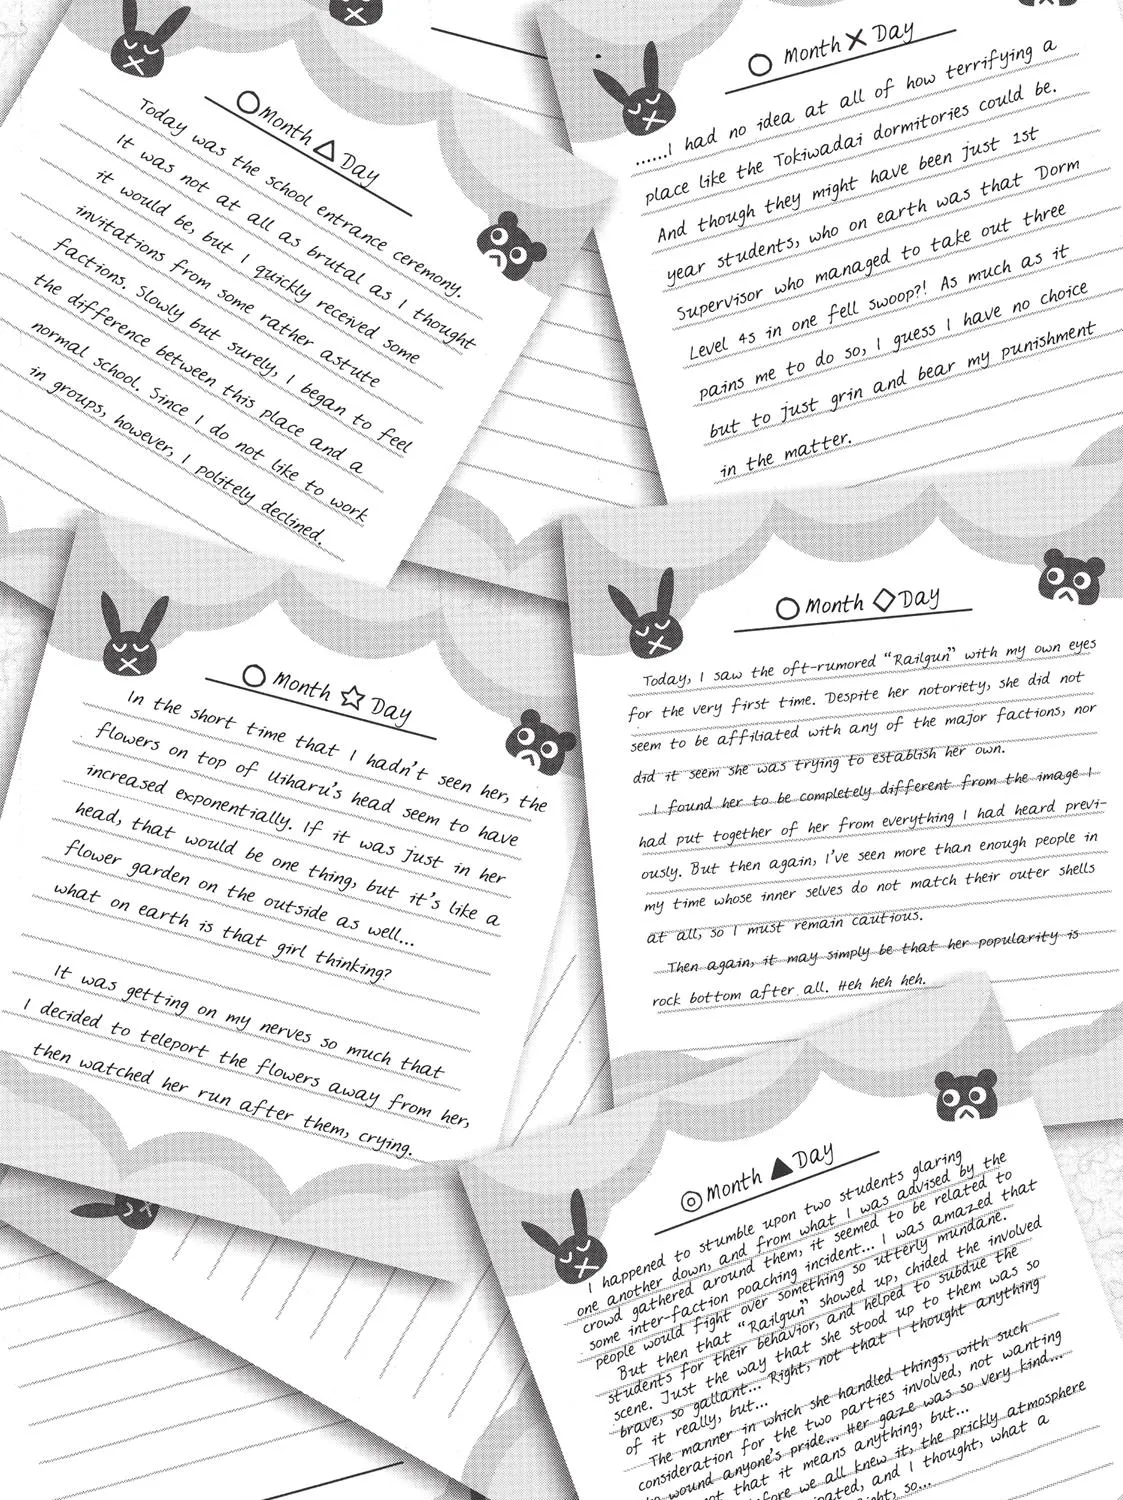 ○ Month △ Day
Today was the school entrance ceremony.
It was not at all as brutal as I thought
it would be, but I quickly received some
invitations from some rather astute
factions. Slowly but surely, I began to feel
the difference between this place and a
normal school. Since I do not like to work
in groups, however, I politely declined.
○ Month X Day
......I had no idea at all of how terrifying a
place like the Tokiwadai dormitories could be.
And though they might have been just 1st
year students, who on earth was that Dorm
Supervisor who managed to take out three
Level 4s in one fell swoop?! As much as it
pains me to do so, I guess I have no choice
but to just grin and bear my punishment
in the matter.
○ Month ☆ Day
In the short time that I hadn't seen her, the
flowers on top of Uiharu's head seem to have
increased exponentially. If it was just in her
head, that would be one thing, but it's like a
flower garden on the outside as well...
what on earth is that girl thinking?
It was getting on my nerves so much that
I decided to teleport the flowers away from her,
then watched her run after them, crying.
○ Month ◇ Day
Today, I saw the oft-rumored "Railgun" with my own eyes
for the very first time. Despite her notoriety, she did not
seem to be affiliated with any of the major factions, nor
did it seem she was trying to establish her own.
I found her to be completely different from the image I
had put together of her from everything I had heard previ-
ously. But then again, I've seen more than enough people in
my time whose inner selves do not match their outer shells
at all, so I must remain cautious.
Then again, it may simply be that her popularity is
rock bottom after all. Heh heh heh.
◎ Month ▲ Day
I happened to stumble upon two students glaring
one another down, and from what I was advised by the
crowd gathered around them, it seemed to be related to
some inter-faction poaching incident... I was amazed that
people would fight over something so utterly mundane.
But then that "Railgun" showed up, chided the involved
students for their behavior, and helped to subdue the
scene. Just the way that she stood up to them was so
brave, so gallant... Right, not that I thought anything
of it really, but...
The manner in which she handled things, with such
consideration for the two parties involved, not wanting
to wound anyone's pride... Her gaze was so very kind...
not that it means anything, but...
before we all knew it, the prickly atmosphere
and I thought, what a
so...